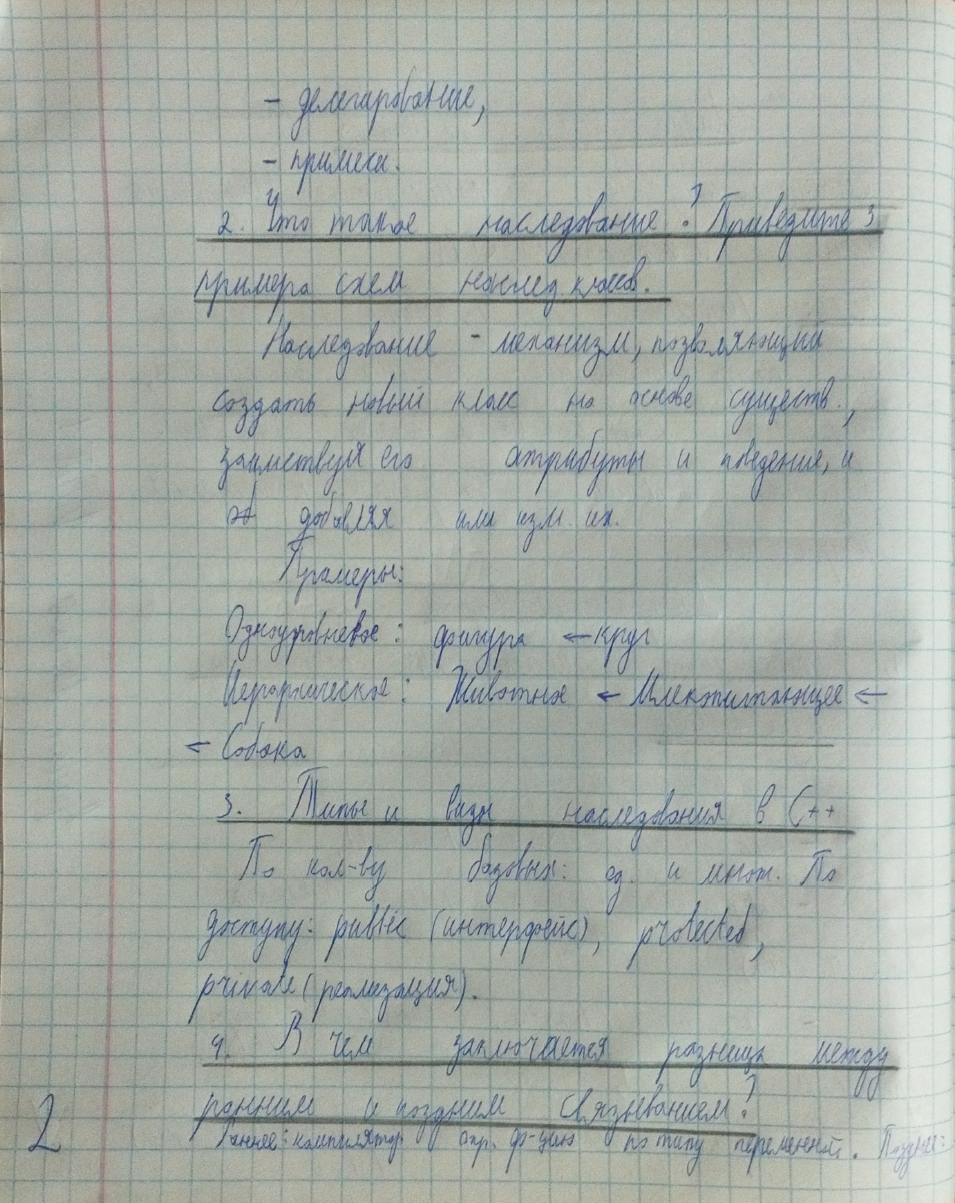 - делегирование,
- примеси.
2. Что такое наследование? Приведите 3
примера схем наслед. классов.
Наследование - механизм, позволяющий
создать новый класс на основе существ.,
заимствуя его атрибуты и поведение, и
добавляя или изм. их.
Примеры:
Одноуровневое: фигура ← круг
Иерархическое: Животное ← Млекопитающее ←
← Собака
3. Типы и виды наследования в C++
По кол-ву базовых: ед. и множ. По
доступу: public (интерфейс), protected,
private (реализация).
4. В чем заключается разница между
ранним и поздним связыванием?
Раннее: компилятор опр. ф-цию по типу переменной. Позднее:
2